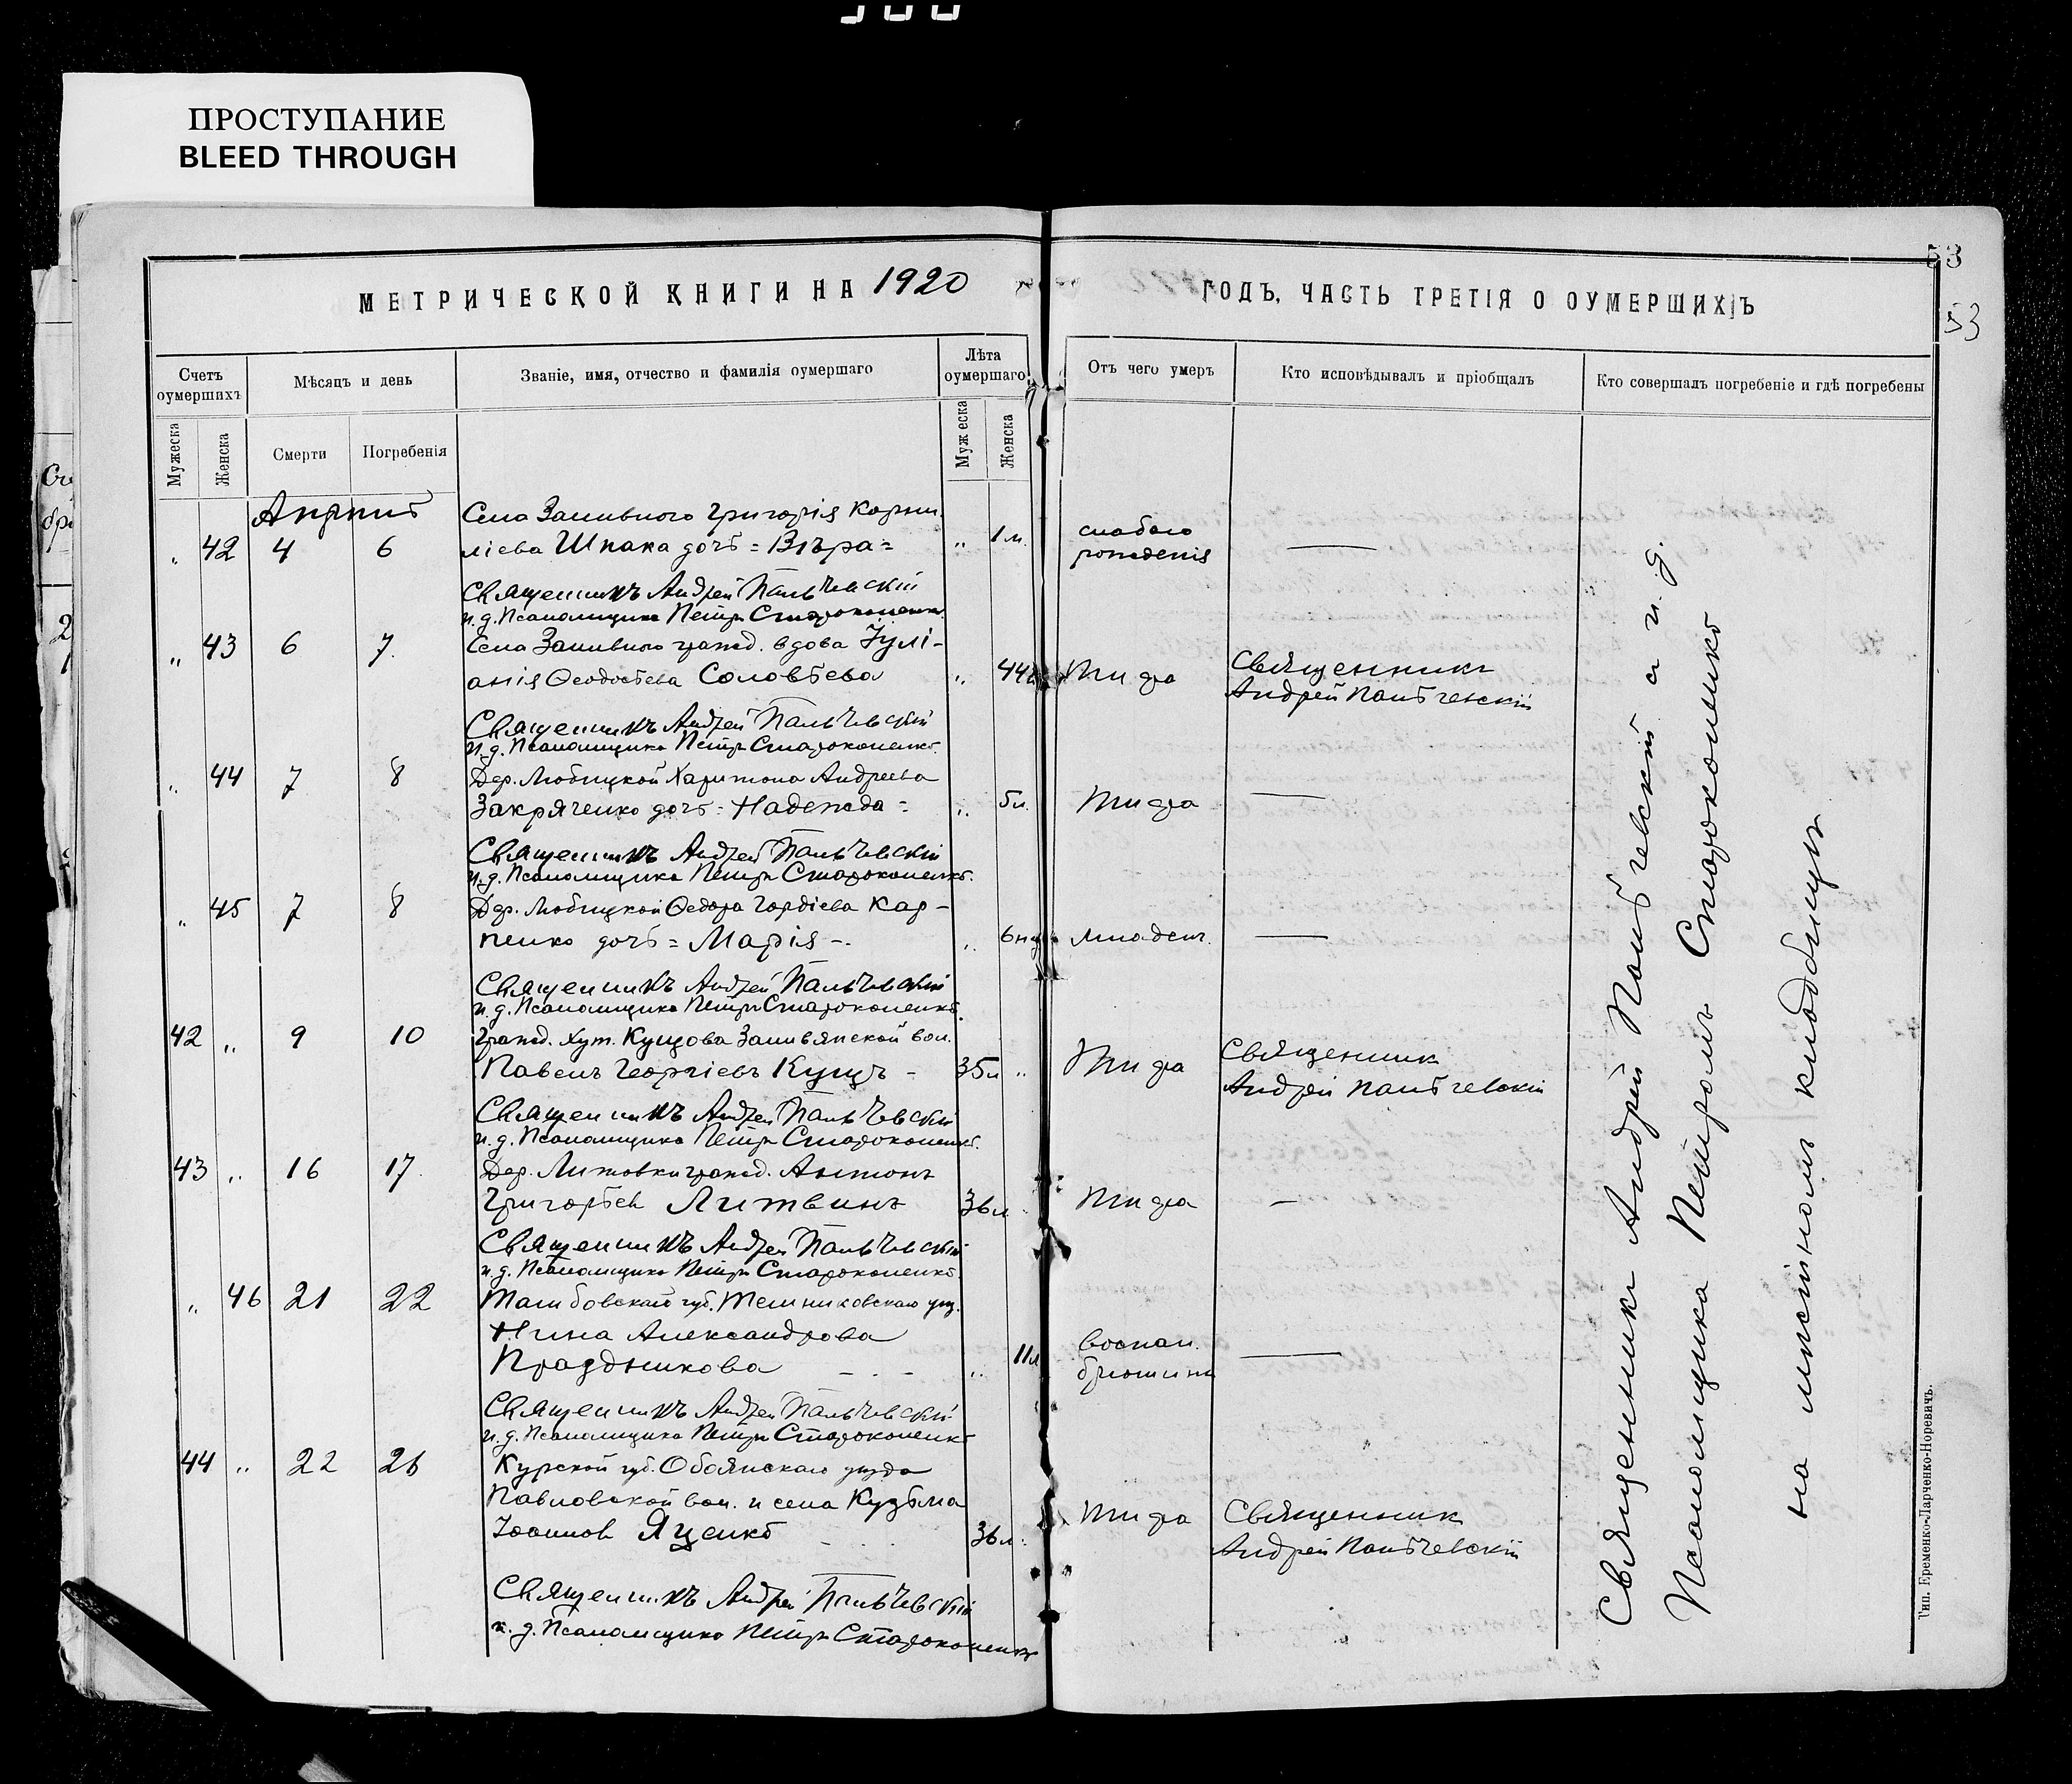 ПРОСТУПАНИЕ
BLEED THROUGH
53
53
МЕТРИЧЕСКОЙ КНИГИ НА 1920 ГОДЪ, ЧАСТЬ ТРЕТІЯ О ОУМЕРШИХЪ
Счетъ оумершихъ
Мѣсяцъ и день
Званіе, имя, отчество и фамилія оумершаго
Лѣта оумершаго
Отъ чего умеръ
Кто исповѣдывалъ и пріобщалъ
Кто совершалъ погребеніе и гдѣ погребены
Мужеска
Женска
Смерти
Погребенія
Мужеска
Женска
Апрѣль
Села Заливного Григорія Корни-
" 42 4 6 ліева Шпака дочь = Вѣра = " 1 м. слабаго
рожденія —
Священникъ Андрей Пальчевскій
и. д. Псаломщика Петръ Староконенко
" 43 6 7. Села Заливного гражд. вдова Іулі-
анія Ѳеодосьева Соловьева " 44 Тифа Священникъ
Андрей Пальчевскій
Священникъ Андрей Пальчевскій
и. д. Псаломщика Петръ Староконенко.
" 44 7 8 Дер. Любицкой Харитона Андреева
Закряченко дочь = Надежда = " 5 л. Тифа —
Священникъ Андрей Пальчевскій
и. д. Псаломщика Петръ Староконенко.
" 45 7 8 Дер. Любицкой Ѳедора Гордіева Кар-
пенко дочь = Марія - " 6 младен. —
Священникъ Андрей Пальчевскій
и. д. Псаломщика Петръ Староконенко.
42 " 9 10 Гражд. хут. Кущова Заливянской вол.
Павелъ Георгіевъ Кущъ - 35 л " Тифа Священник
Андрей Пальчевскій
Священникъ Андрей Пальчевскій
и. д. Псаломщика Петръ Староконенко.
43 " 16 17. Дер. Литовки гражд. Антонъ
Григорьев Литвинъ 36 л Тифа —
Священникъ Андрей Пальчевскій
и. д. Псаломщика Петръ Староконенко.
" 46 21 22 Тамбовской губ. Темниковскаго уез.
Нина Александрова
Праздникова " 11 л воспал.
брюшины —
Священникъ Андрей Пальчевскій
и. д. Псаломщика Петръ Староконенко
44 " 22 26 Курской губ. Обоянскаго уезда
Павловской вол. и села Кузьма
Іоаннов Яценко 36 л. Тифа Священник
Андрей Пальчевскій
Священникъ Андрей Пальчевскій
и. д. Псаломщика Петръ Староконенко
Священникъ Андрей Пальчевскій с и. д.
Псаломщика Петромъ Староконенко
на мѣстномъ кладбищѣ
Тип. Еременко-Ларченко-Норевичъ.